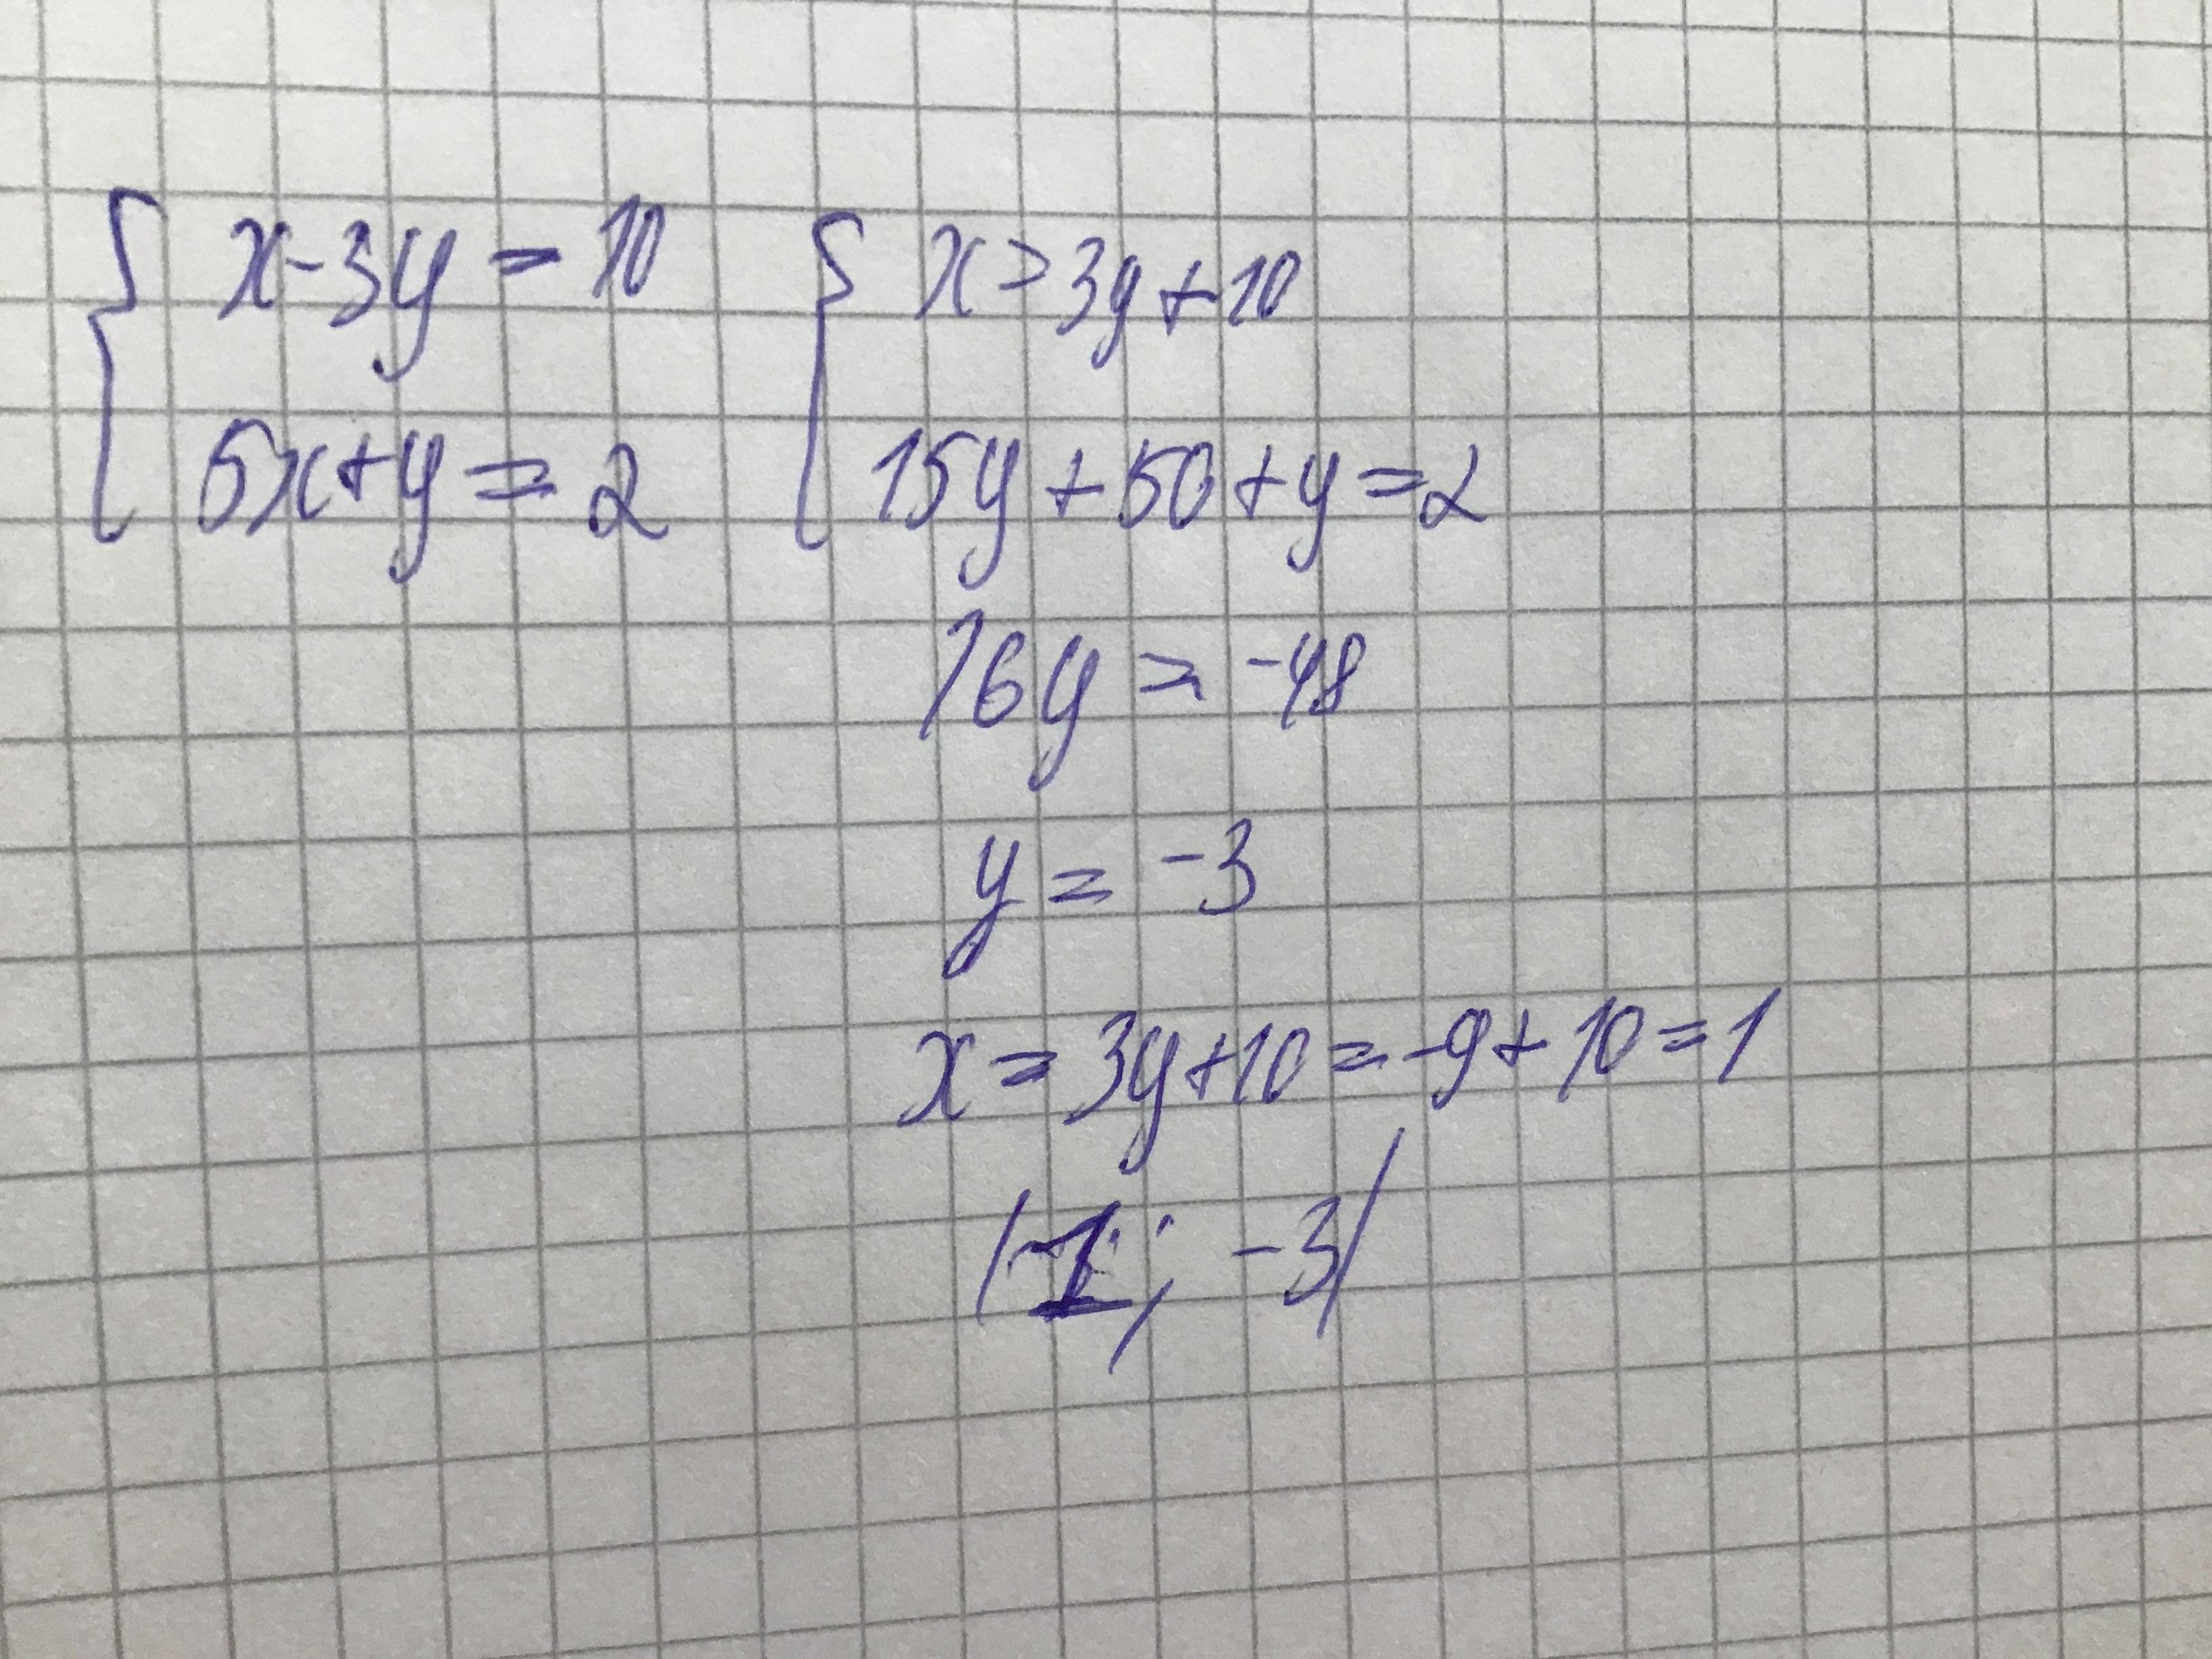 x-3y=10
5x+y=2
x=3y+10
15y+50+y=2
16y=-48
y=-3
x=3y+10=-9+10=1
(1; -3)